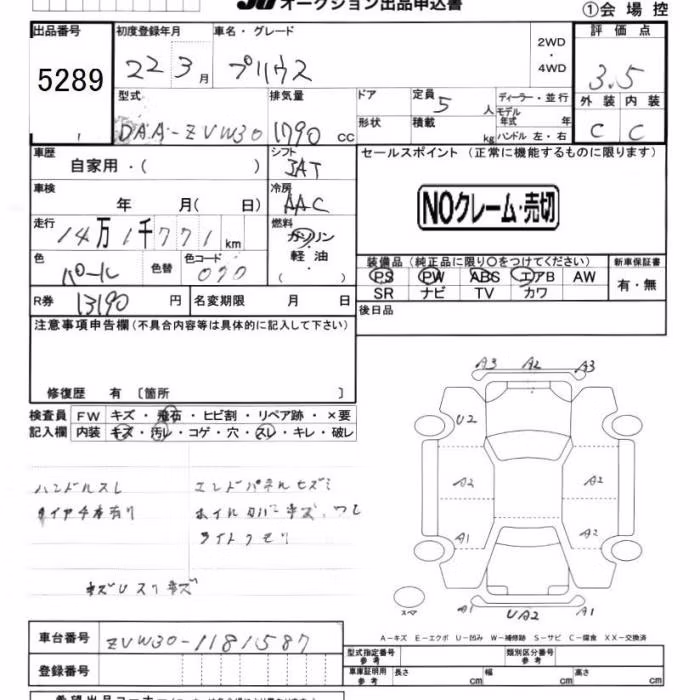 オークション出品申込書
①会場控
出品番号 初度登録年月 車名・グレード 評価点
5289 22 3月 プリウス 2WD・4WD 3.5
型式 排気量 ドア 定員 5人 ディーラー・並行 外装 内装
DAA-ZVW30 1790cc 形状 積載 kg モデル年式 年 ハンドル 左・右 C C
車歴 自家用・( ) シフト JAT セールスポイント(正常に機能するものに限ります)
車検 年 月( 日) 冷房 AAC NOクレーム・売切
走行 14万1千771km 燃料 ガソリン・軽油・( )
色 パール 色替 色コード 070
装備品(純正品に限り○をつけてください) 新車保証書
PS PW ABS エアB AW 有・無
SR ナビ TV カワ
R券 13190円 名変期限 月 日 後日品
注意事項申告欄(不具合内容等は具体的に記入して下さい)
修復歴 有 〔箇所 〕
検査員 FW キズ・飛石・ヒビ割・リペア跡・×要
記入欄 内装 キズ・汚レ・コゲ・穴・スレ・キレ・破レ
ハンドルスレ エンドパネルヒズミ
タイヤ4本有り ホイルカバーキズ、ワレ
ライトクモリ
キズUスリキズ
A3 A2 A3
U2
A2 A2
A1 A2
A1 UA2 A1
スペア
A-キズ E-エクボ U-凹み W-補修跡 S-サビ C-腐食 XX-交換済
車台番号 ZVW30-1181587
登録番号
型式指定番号 参考 類別区分番号 参考
車庫証明用 参考 長さ cm 幅 cm 高さ cm